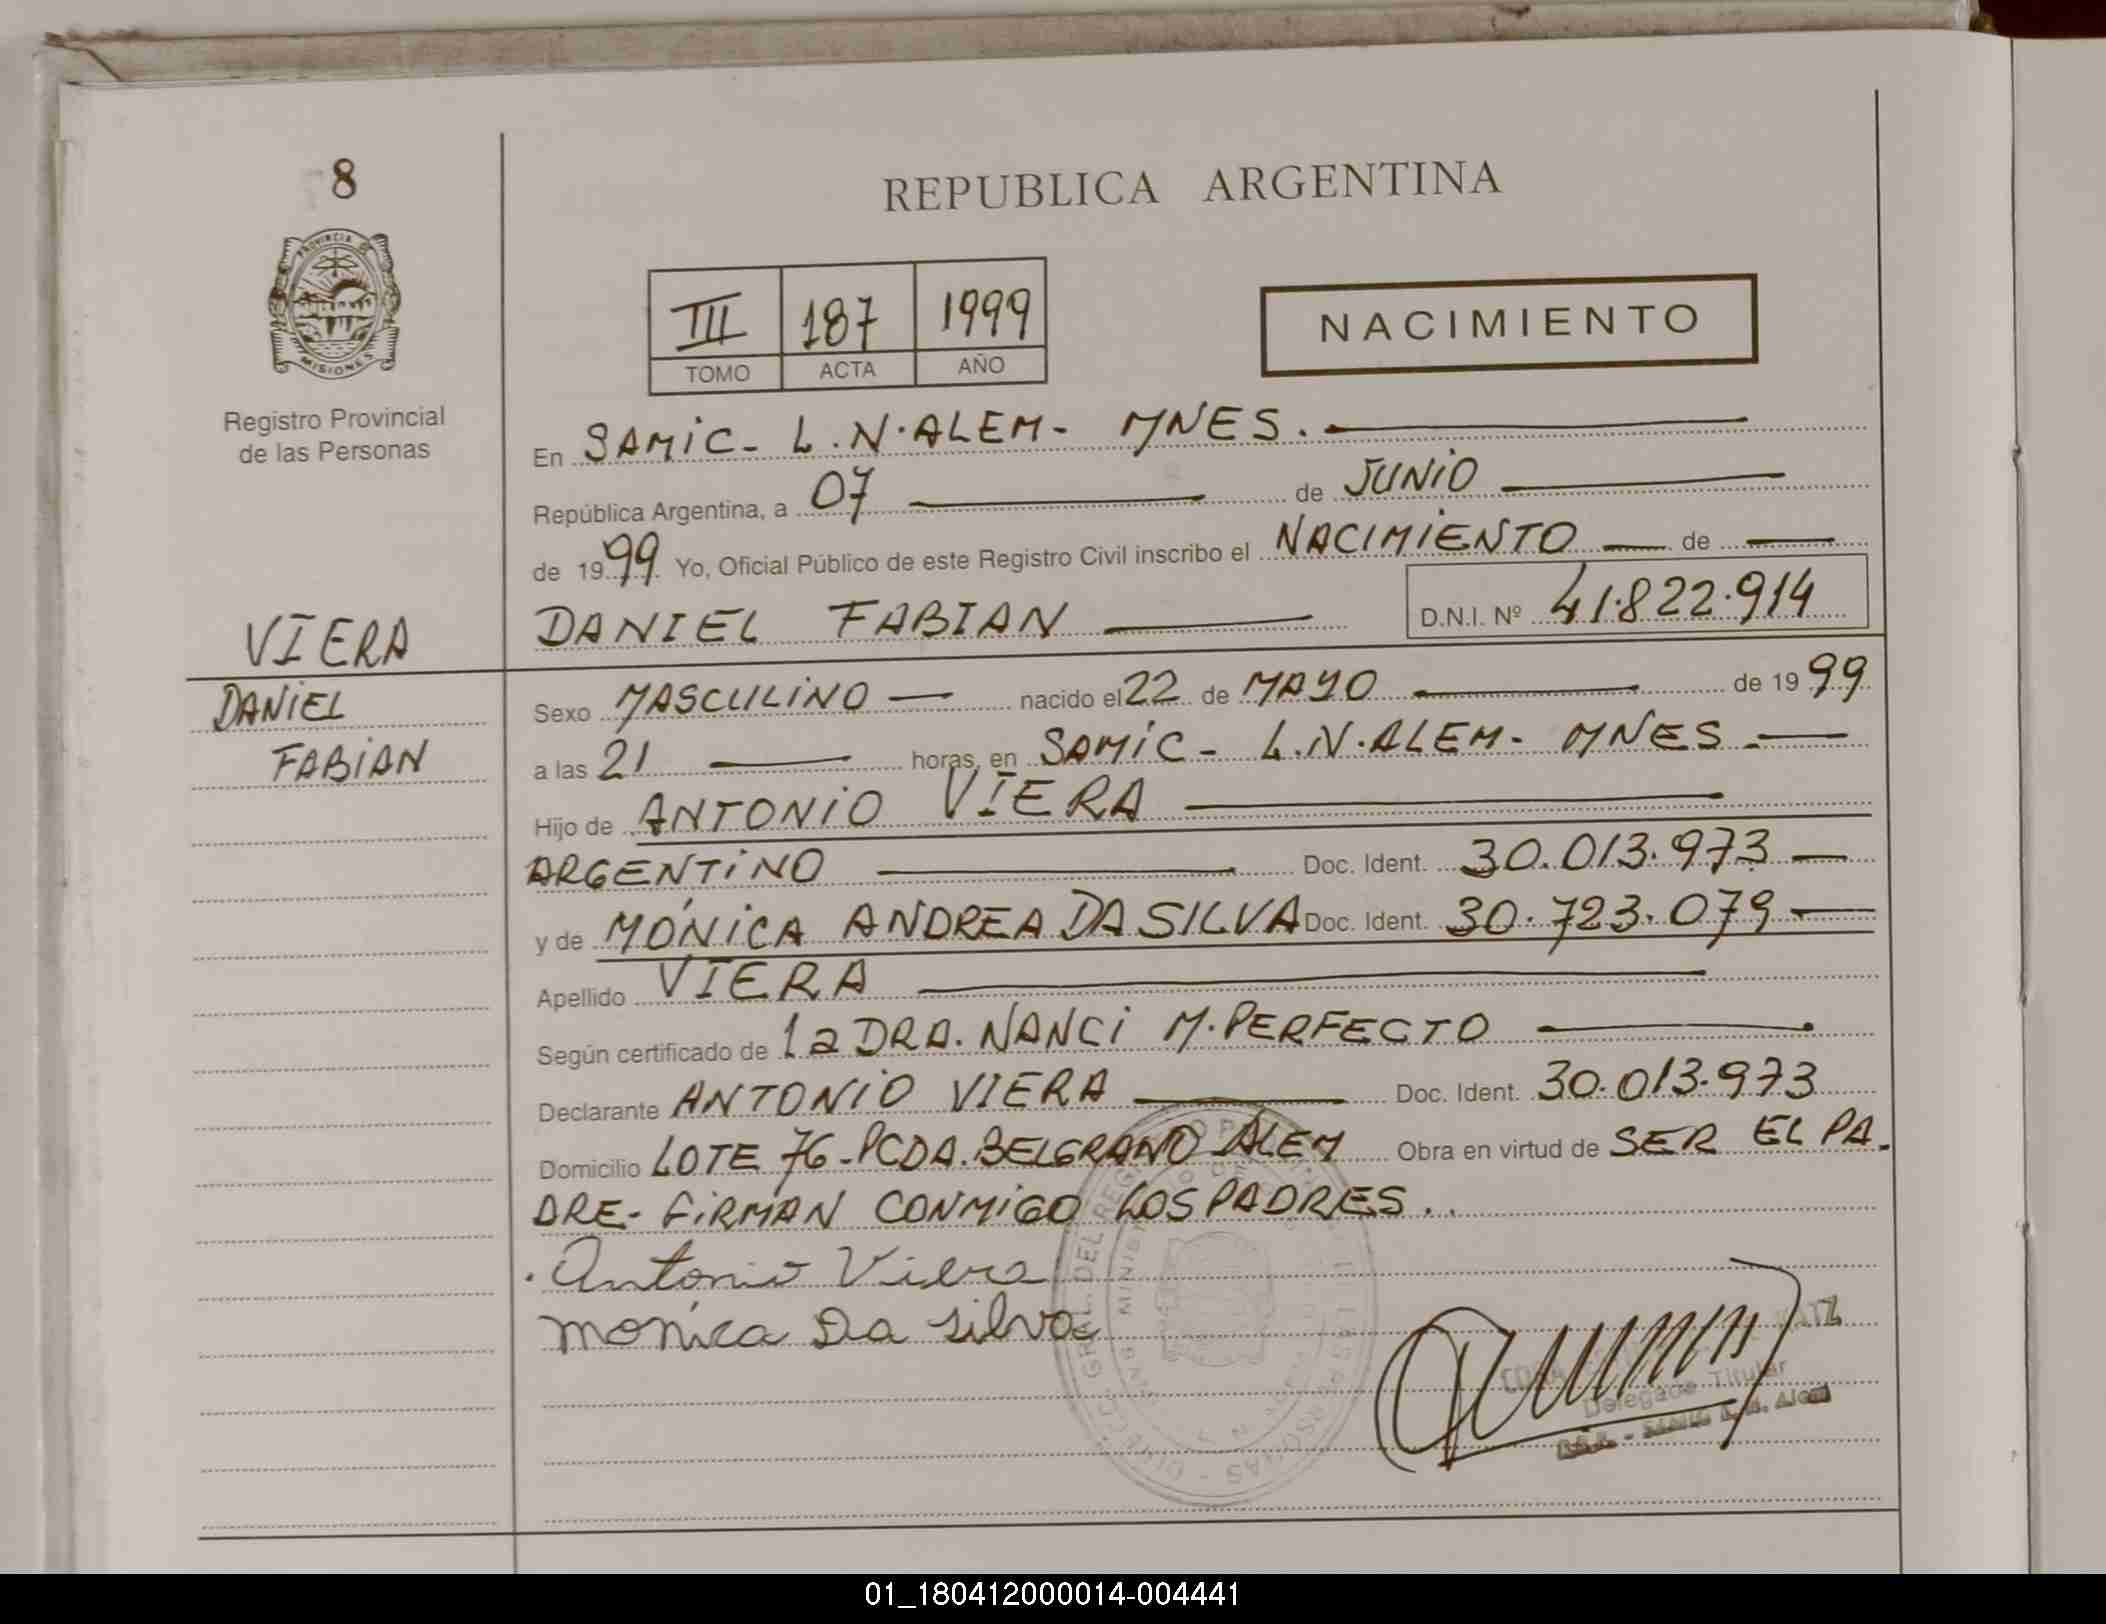 8
REPUBLICA ARGENTINA
PROVINCIA DE
MISIONES
III 187 1999
TOMO ACTA AÑO
NACIMIENTO
Registro Provincial
de las Personas
En SAMIC - L.N.ALEM - MNES.
República Argentina, a 07 de JUNIO
de 1999 Yo, Oficial Público de este Registro Civil inscribo el NACIMIENTO de
DANIEL FABIAN D.N.I. Nº 41.822.914
VIERA
DANIEL
FABIAN
Sexo MASCULINO nacido el 22 de MAYO de 1999
a las 21 horas, en SAMIC - L.N.ALEM - MNES.
Hijo de ANTONIO VIERA
ARGENTINO Doc. Ident. 30.013.973
y de MÓNICA ANDREA DA SILVA Doc. Ident. 30.723.079
Apellido VIERA
Según certificado de la DRA. NANCI M. PERFECTO
Declarante ANTONIO VIERA Doc. Ident. 30.013.973
Domicilio LOTE 76 - PCDA. BELGRANO ALEM Obra en virtud de SER EL PA-
DRE - FIRMAN CONMIGO LOS PADRES..
Antonio Viera
Mónica Da Silva
Delegada Titular
L.N. Alem
01_180412000014-004441